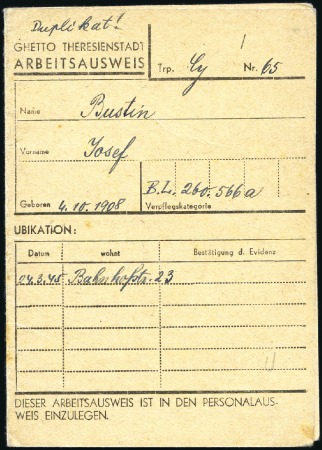 Duplikat!
GHETTO THERESIENSTADT
ARBEITSAUSWEIS
Trp. Cy Nr. 65
Name Bustin
Vorname Josef
B.L. 260.566a
Geboren 4.10.1908 Verpflegskategorie
UBIKATION:
Datum wohnt Bestätigung d. Evidenz
04.3.45 Bahnhofstr. 23
DIESER ARBEITSAUSWEIS IST IN DEN PERSONALAUS-
WEIS EINZULEGEN.